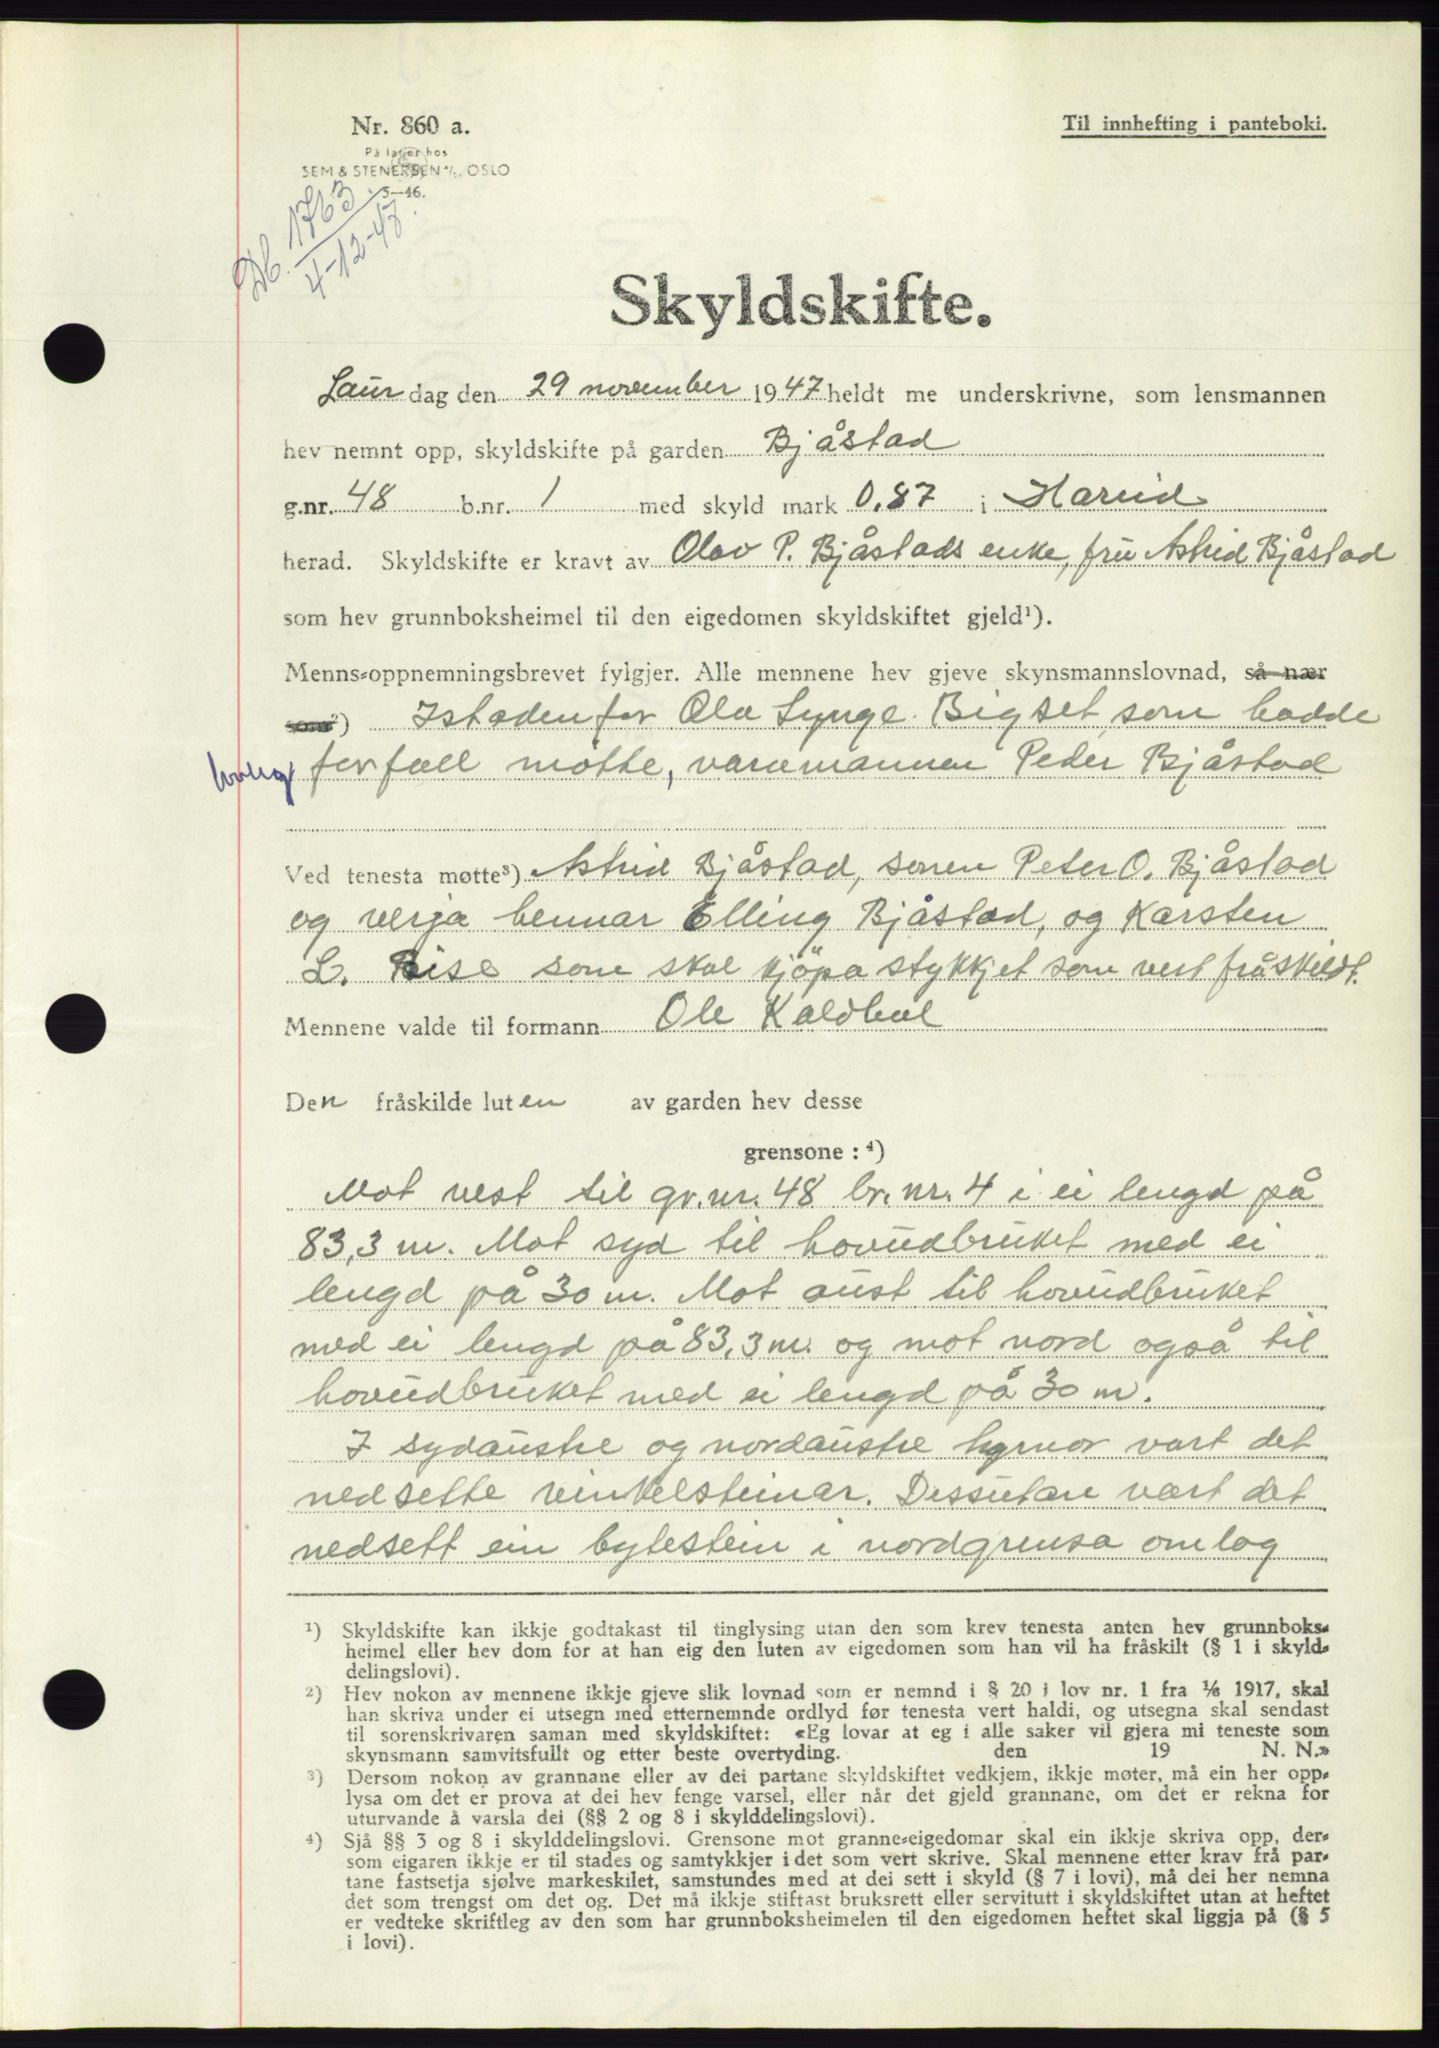 Nr. 860 a.
Til innhefting i panteboki.
På lager hos
SEM & STENERSEN A/S, OSLO
5—46.
Db. 1763
4-12-47.
Skyldskifte.
Laurdag den 29 november 1947 heldt me underskrivne, som lensmannen
hev nemnt opp, skyldskifte på garden Bjåstad
g.nr. 48 b.nr. 1 med skyld mark 0.87 i Hareid
herad. Skyldskifte er kravt av Olav P. Bjåstads enke, fru Astrid Bjåstad
som hev grunnboksheimel til den eigedomen skyldskiftet gjeld¹).
Menns-oppnemningsbrevet fylgjer. Alle mennene hev gjeve skynsmannslovnad, så nær
som²) Istaden for Ola Synge Bigset, som hadde
forfall møtte, varamannen Peder Bjåstad
Ved tenesta møtte³) Astrid Bjåstad, sonen Peter O. Bjåstad
og verja hennar Elling Bjåstad, og Karsten
L. Rise som skal kjöpa stykkjet som vert fråskildt.
Mennene valde til formann Ole Kaldhol
Den fråskilde luten av garden hev desse
grensone : ⁴)
Mot vest til gr.nr. 48 br.nr. 4 i ei lengd på
83,3 m. Mot syd til hovudbruket med ei
lengd på 30 m. Mot aust til hovudbruket
med ei lengd på 83,3 m. og mot nord også til
hovudbruket med ei lengd på 30 m.
I sydaustre og nordaustre hyrnor vart det
nedsette vinkelsteinar. Dessutan vart det
nedsett ein bytestein i nordgrensa omlag
¹) Skyldskifte kan ikkje godtakast til tinglysing utan den som krev tenesta anten hev grunnboks-
heimel eller hev dom for at han eig den luten av eigedomen som han vil ha fråskilt (§ 1 i skyld-
delingslovi).
²) Hev nokon av mennene ikkje gjeve slik lovnad som er nemnd i § 20 i lov nr. 1 fra 1/6 1917, skal
han skriva under ei utsegn med etternemnde ordlyd før tenesta vert haldi, og utsegna skal sendast
til sorenskrivaren saman med skyldskiftet: «Eg lovar at eg i alle saker vil gjera mi teneste som
skynsmann samvitsfullt og etter beste overtyding. den 19 N. N.»
³) Dersom nokon av grannane eller av dei partane skyldskiftet vedkjem, ikkje møter, må ein her opp-
lysa om det er prova at dei hev fenge varsel, eller når det gjeld grannane, om det er rekna for
uturvande å varsla dei (§§ 2 og 8 i skylddelingslovi).
⁴) Sjå §§ 3 og 8 i skylddelingslovi. Grensone mot granne-eigedomar skal ein ikkje skriva opp, der-
som eigaren ikkje er til stades og samtykkjer i det som vert skrive. Skal mennene etter krav frå par-
tane fastsetja sjølve markeskilet, samstundes med at dei sett i skyld (§ 7 i lovi), må dei her nemna
det som trengst om det og. Det må ikkje stiftast bruksrett eller servitutt i skyldskiftet utan at heftet
er vedteke skriftleg av den som har grunnboksheimelen til den eigedomen heftet skal liggja på (§ 5
i lovi).